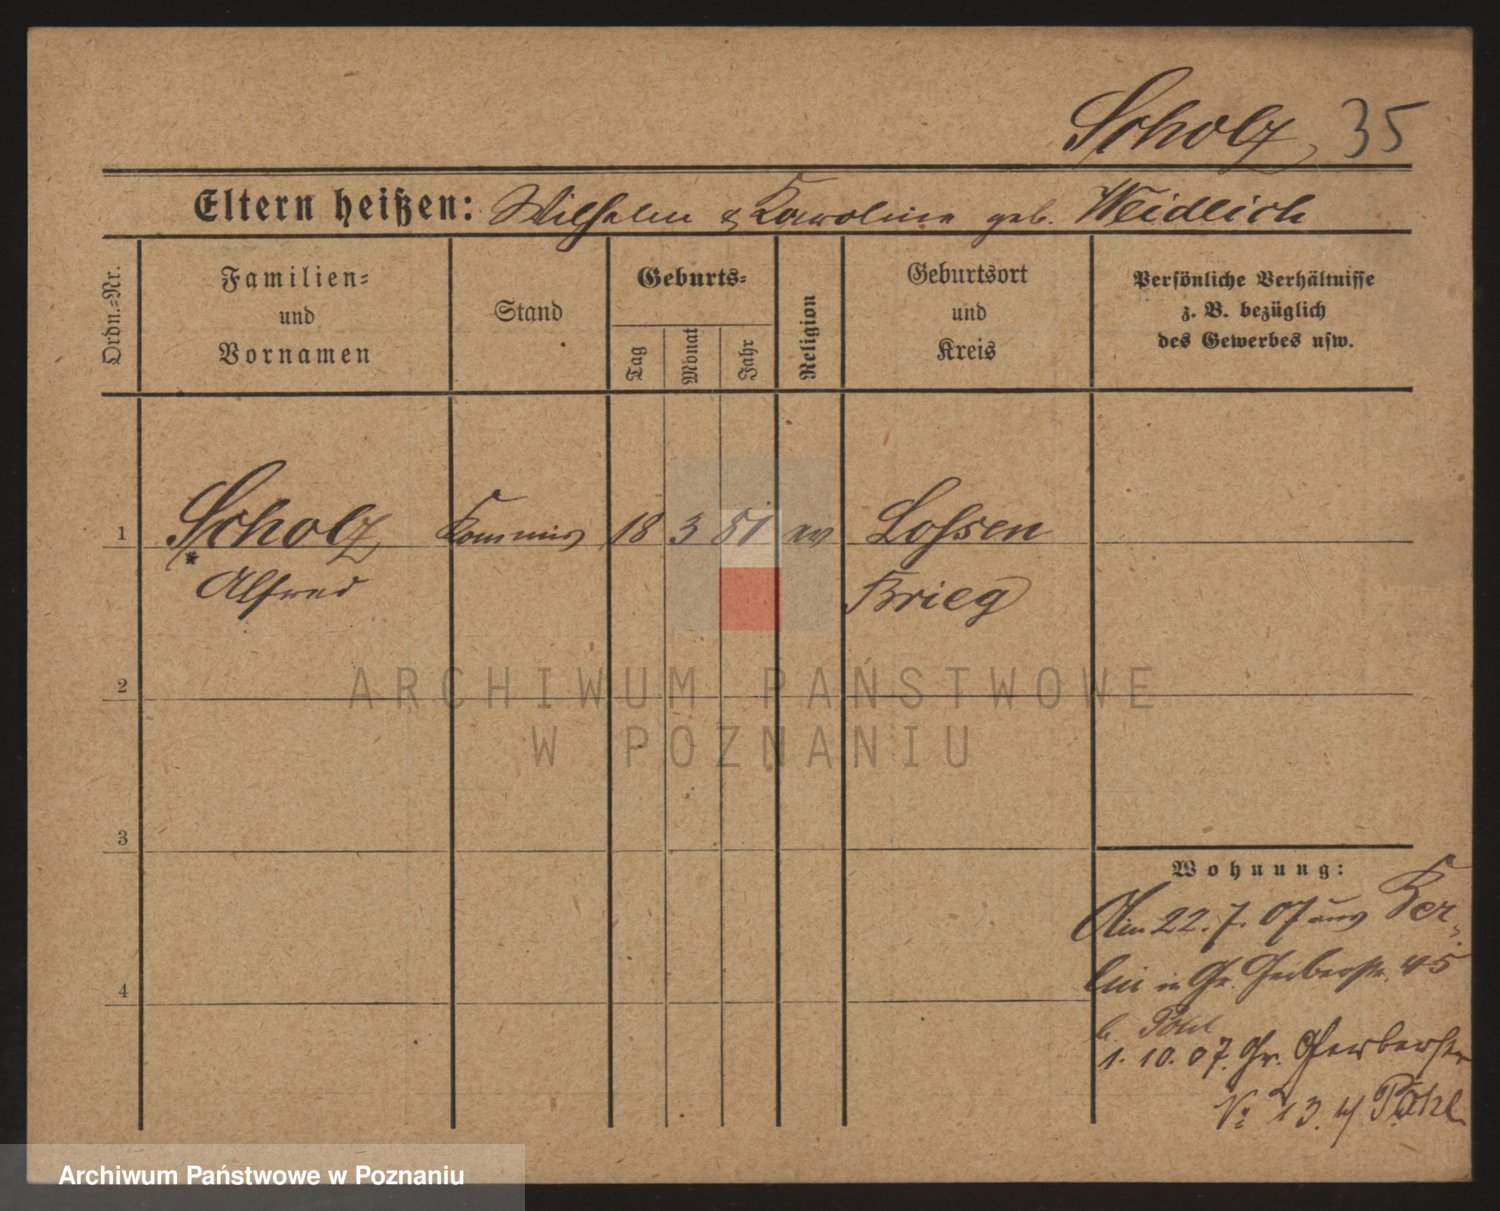 Scholz, 35
Eltern heißen: Wilhelm & Karoline geb. Weidlich
Ordn.=Nr.
Familien=
und
Vornamen
Stand
Geburts=
Tag
Monat
Jahr
Religion
Geburtsort
und
Kreis
Persönliche Verhältnisse
z. B. bezüglich
des Gewerbes usw.
1 Scholz Kommis 18 3 81 ev Lossen
* Alfred Brieg
2
3
4
Wohnung:
Am 22.7.07 aus Ber-
lin in Gr. Gerberstr. 45
b. Pohl
1.10.07. Gr. Gerberstr
No 13. Pohl
ARCHIWUM PAŃSTWOWE
W POZNANIU
Archiwum Państwowe w Poznaniu